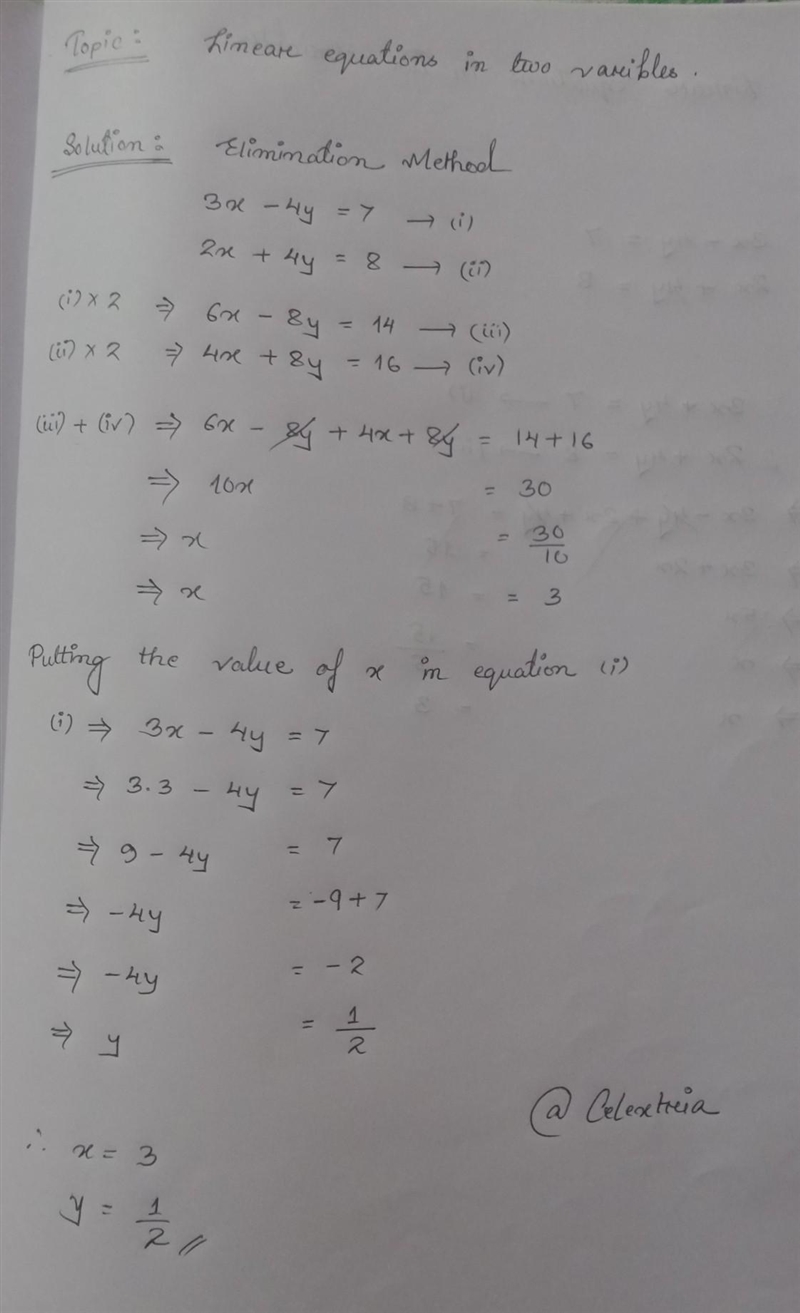 Topic: Linear equations in two varibles.
Solution: Elimination Method
3x - 4y = 7 → (i)
2x + 4y = 8 → (ii)
(i) × 2 ⇒ 6x - 8y = 14 → (iii)
(ii) × 2 ⇒ 4x + 8y = 16 → (iv)
(iii) + (iv) ⇒ 6x - 8y + 4x + 8y = 14 + 16
⇒ 10x = 30
⇒ x = 30/10
⇒ x = 3
Putting the value of x in equation (i)
(i) ⇒ 3x - 4y = 7
⇒ 3.3 - 4y = 7
⇒ 9 - 4y = 7
⇒ -4y = -9 + 7
⇒ -4y = -2
⇒ y = 1/2
@ Celextria
∴ x = 3
y = 1/2 //